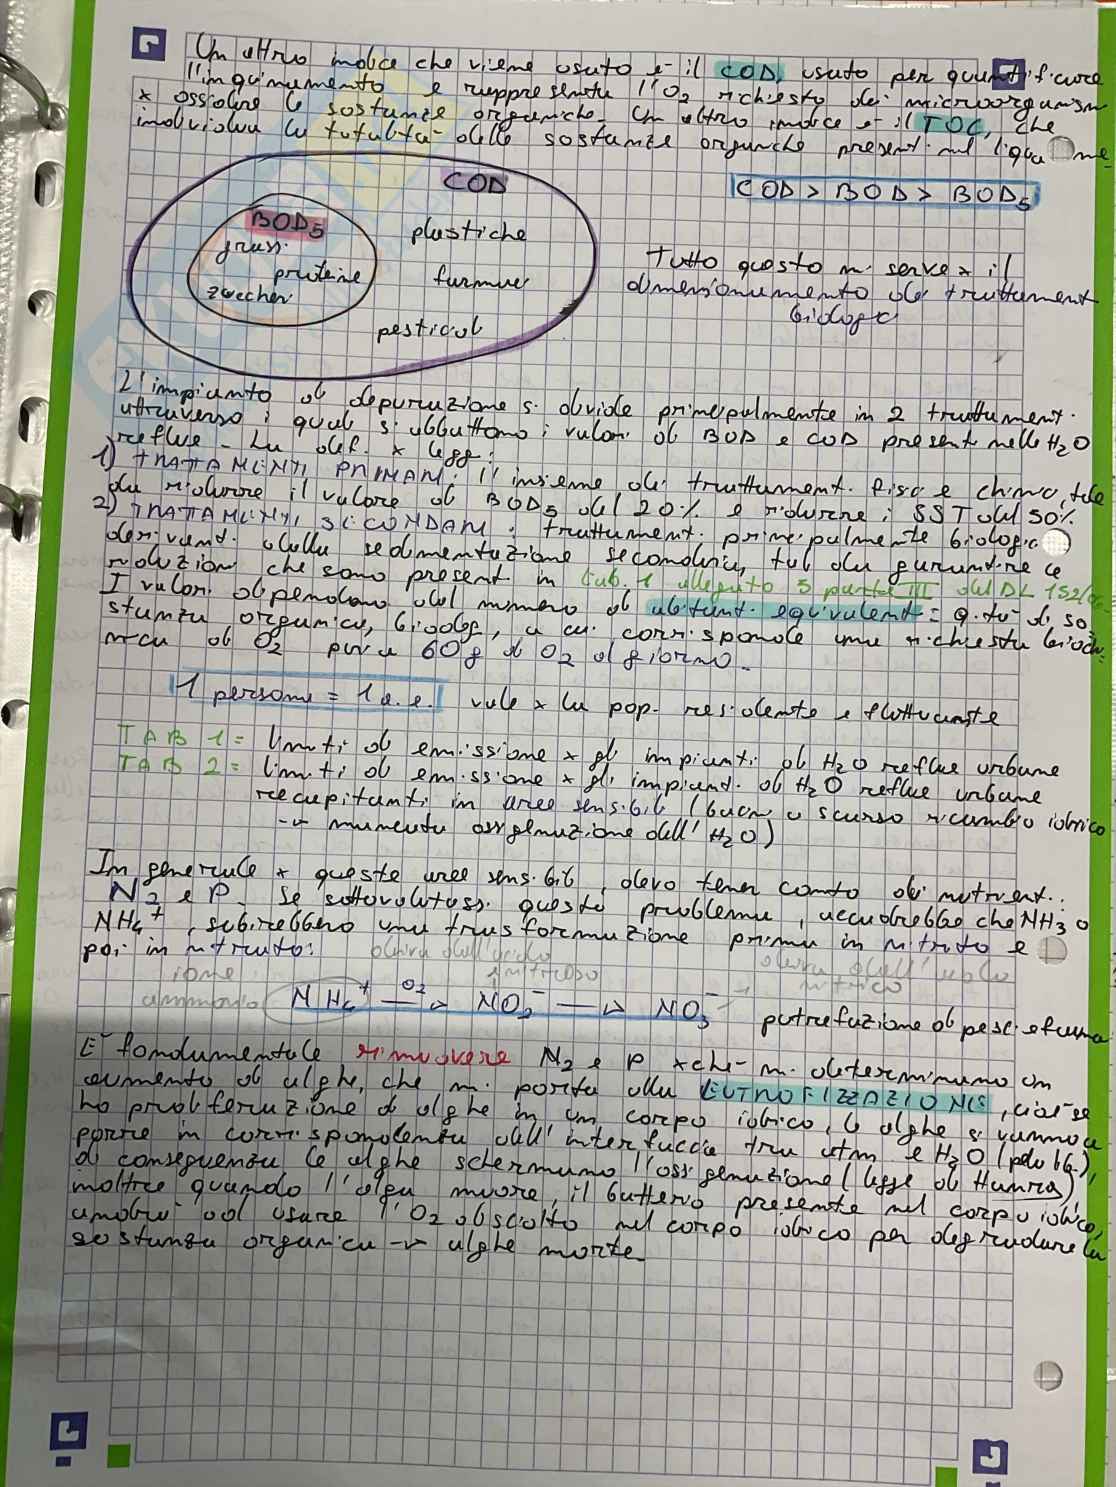 Un altro indice che viene usato è il COD, usato per quantificare
l'inquinamento e rappresenta l'O2 richiesto dai microorganism
x ossidare le sostanze organiche. Un altro indice è il TOC, che
individua la totalità delle sostanze organiche present. nel liqua me
COD
COD > BOD > BOD5
BOD5
grassi
proteine
zuccheri
plastiche
farmaci
pesticidi
Tutto questo mi serve x il
dimensionamento dei trattament
biologici
L'impianto di depurazione si divide principalmente in 2 trattament.
attraverso i quali si abbattono i valori di BOD e COD presenti nelle H2O
reflue - La def. x legge:
1) TRATTAMENTI PRIMARI: l'insieme dei trattament. fisici e chimici, tale
da ridurre il valore di BOD5 del 20% e ridurre i SST del 50%
2) TRATTAMENTI SECONDARI: trattament. principalmente biologici
derivant. dalla sedimentazione secondaria, tali da garantire le
riduzioni che sono present in tab. 1 allegato 5 parte III del DL 152/06
I valori dipendono dal numero di abitant. equivalenti = q.tà di so
stanza organica, biodeg, a cui corrisponde una richiesta bioch.
mica di O2 pari a 60g di O2 al giorno.
1 persona = 1 a.e. vale x la pop. residente e fluttuante
TAB 1 = limiti di emissione x gli impianti di H2O reflue urbane
TAB 2 = limiti di emissione x gli impiant. di H2O reflue urbane
recapitanti in aree sensibili (bacini a scarso ricambio idrico
→ mancata ossigenazione dell'H2O)
In generale x queste aree sensibili, devo tener conto dei nutrient.:
N2 e P. Se sottovalutassi questo problema, accadrebbe che NH3 o
NH4+, subirebbero una trasformazione prima in nitrito e
poi in nitrato:
deriva dall'acido nitroso
deriva dall'acido nitrico
ione ammonio NH4+ —O2→ NO2- —→ NO3- → putrefazione di pesci e fauna
E' fondamentale rimuovere N2 e P xchè mi determinano un
aumento di alghe, che mi porta alla EUTROFIZZAZIONE, cioè se
ho proliferazione di alghe in un corpo idrico, le alghe si vanno a
porre in corrispondenza dell'interfaccia tra atm e H2O (pelo lib.),
di conseguenza le alghe schermano l'ossigenazione (legge di Henry)
inoltre quando l'alga muore, il batterio presente nel corpo idrico,
andrà ad usare l'O2 disciolto nel corpo idrico per degradare la
sostanza organica → alghe morte